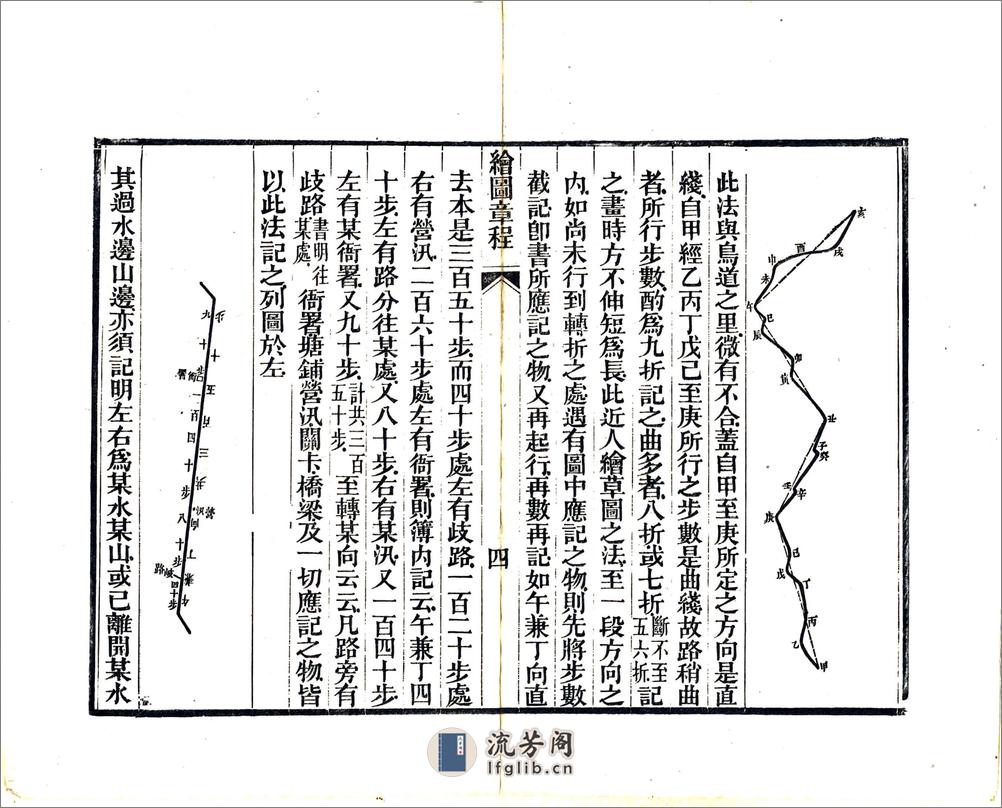 亥
戌
酉
申
未
午
巳
辰
卯
寅
丑
子
癸
壬
辛
庚
己
戊
丁
丙
乙
甲
此法與鳥道之里微有不合蓋自甲至庚所定之方向是直
綫自甲經乙丙丁戊己至庚所行之步數是曲綫故路稍曲
者所行步數酌爲九折記之曲多者八折或七折斷不至五六折記
之畫時方不伸短爲長此近人繪草圖之法至一段方向之
內如尚未行到轉折之處遇有圖中應記之物則先將步數
截記卽書所應記之物又再起行再數再記如午兼丁向直
繪圖章程
四
去本是三百五十步而四十步處左有歧路一百二十步處
右有營汛二百六十步處左有衙署則簿內記云午兼丁四
十步左有路分往某處又八十步右有某汛又一百四十步
左有某衙署又九十步計共三百五十步至轉某向云云凡路旁有
歧路書明往某處衙署塘鋪營汛關卡橋梁及一切應記之物皆
以此法記之列圖於左
九十步
衙署
一百四十步
八十步
營汛
歧路
四十步
午兼丁向共三百五十步
其過水邊山邊亦須記明左右爲某水某山或已離開某水
流芳阁
lfglib.cn